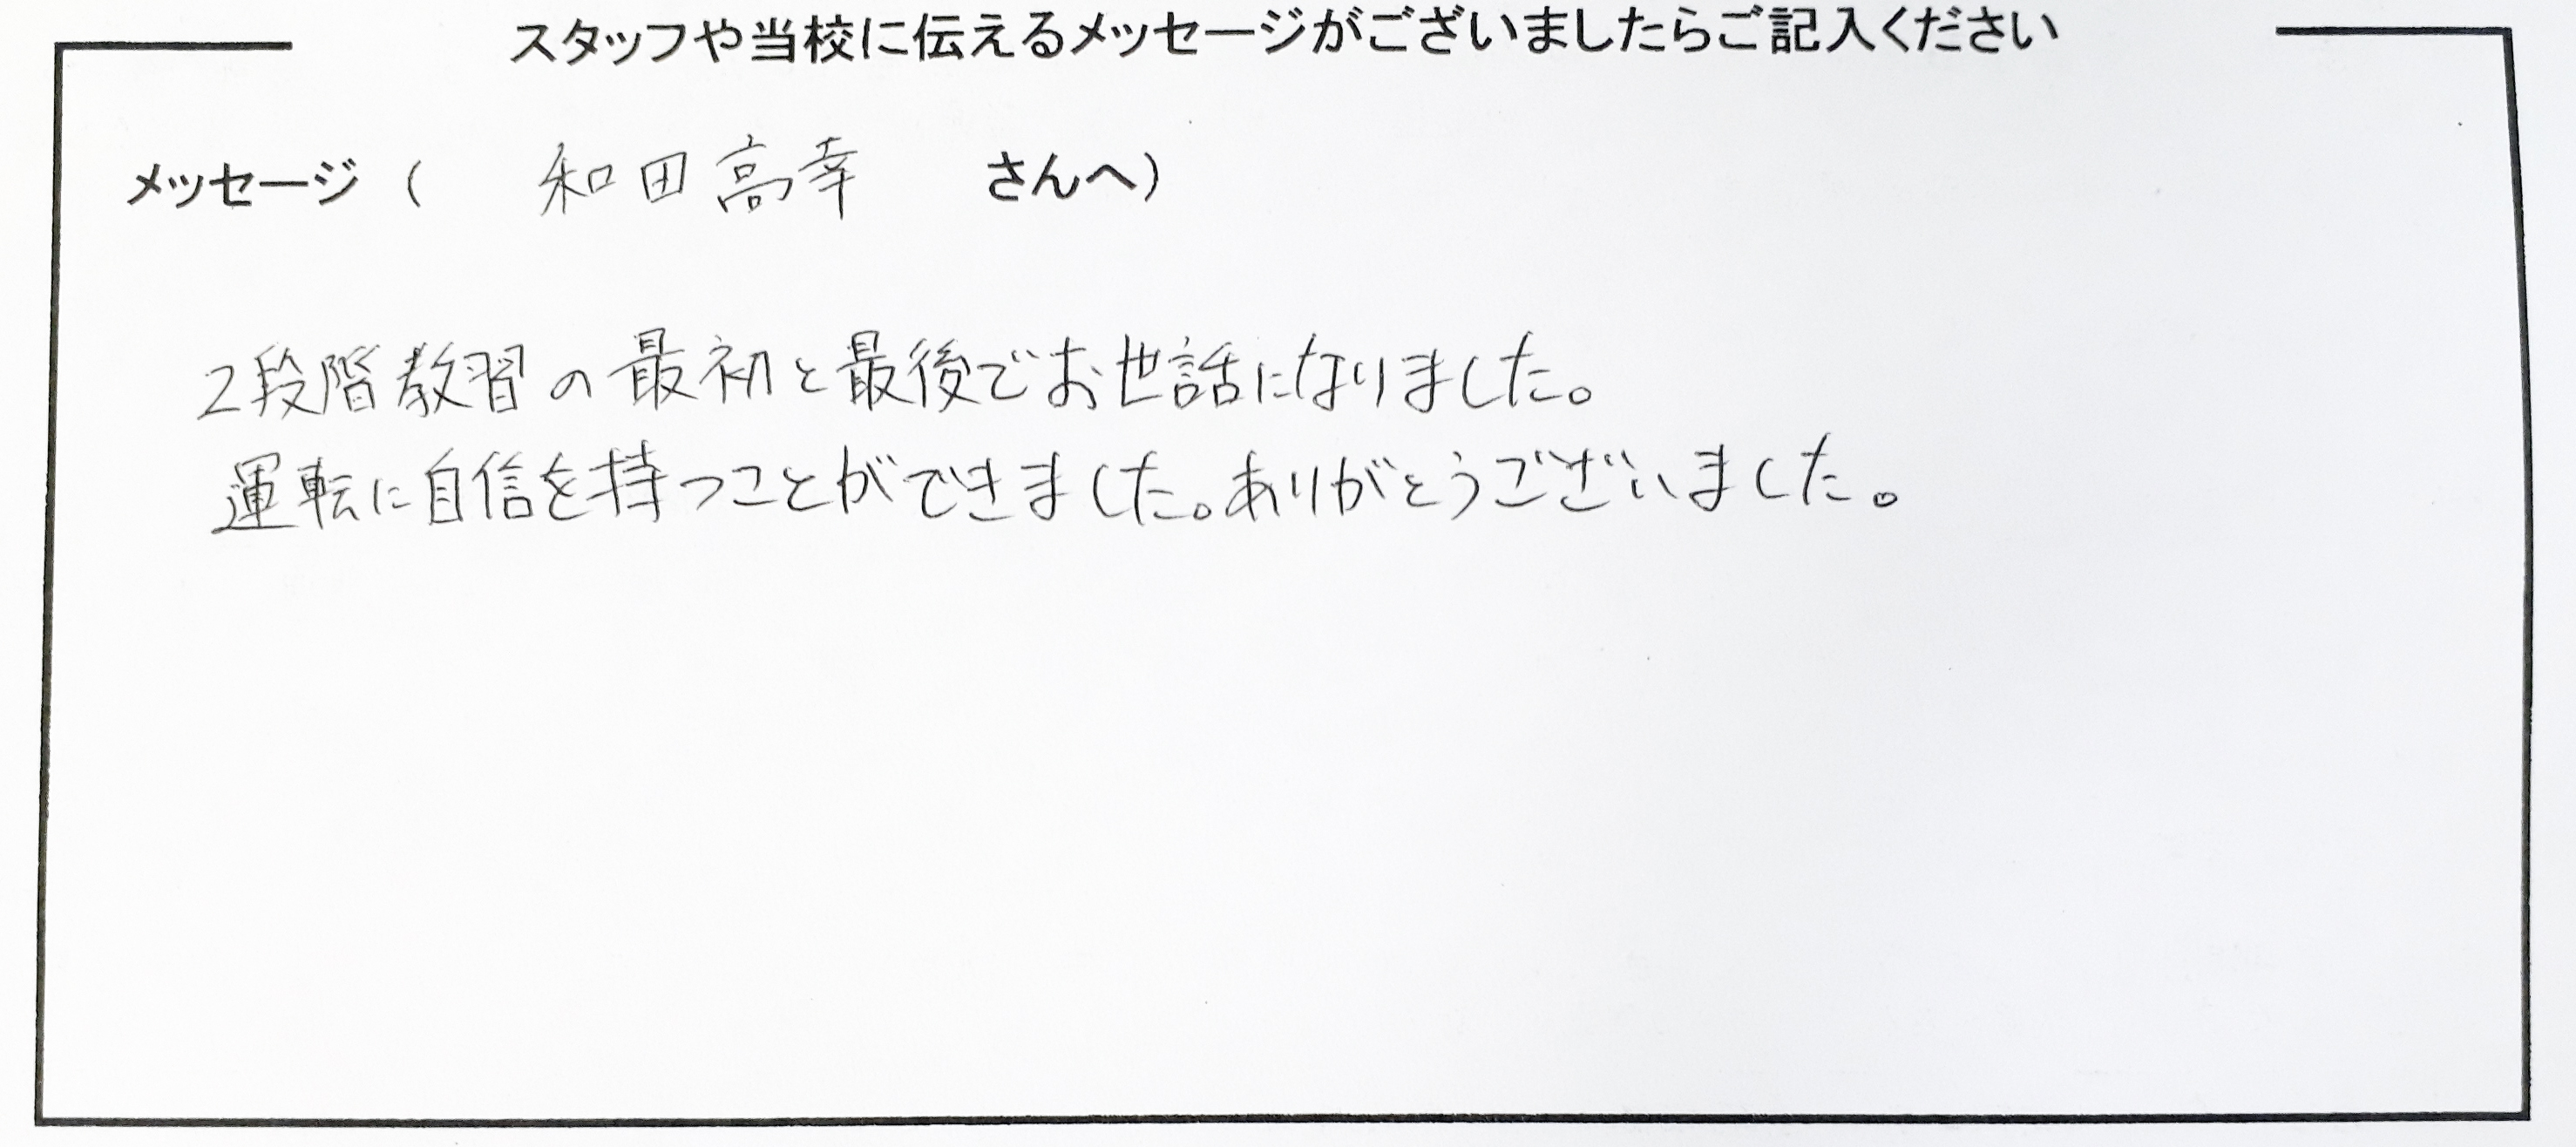 スタッフや当校に伝えるメッセージがございましたらご記入ください
メッセージ（ 和田高幸 さんへ）
2段階教習の最初と最後でお世話になりました。
運転に自信を持つことができました。ありがとうございました。